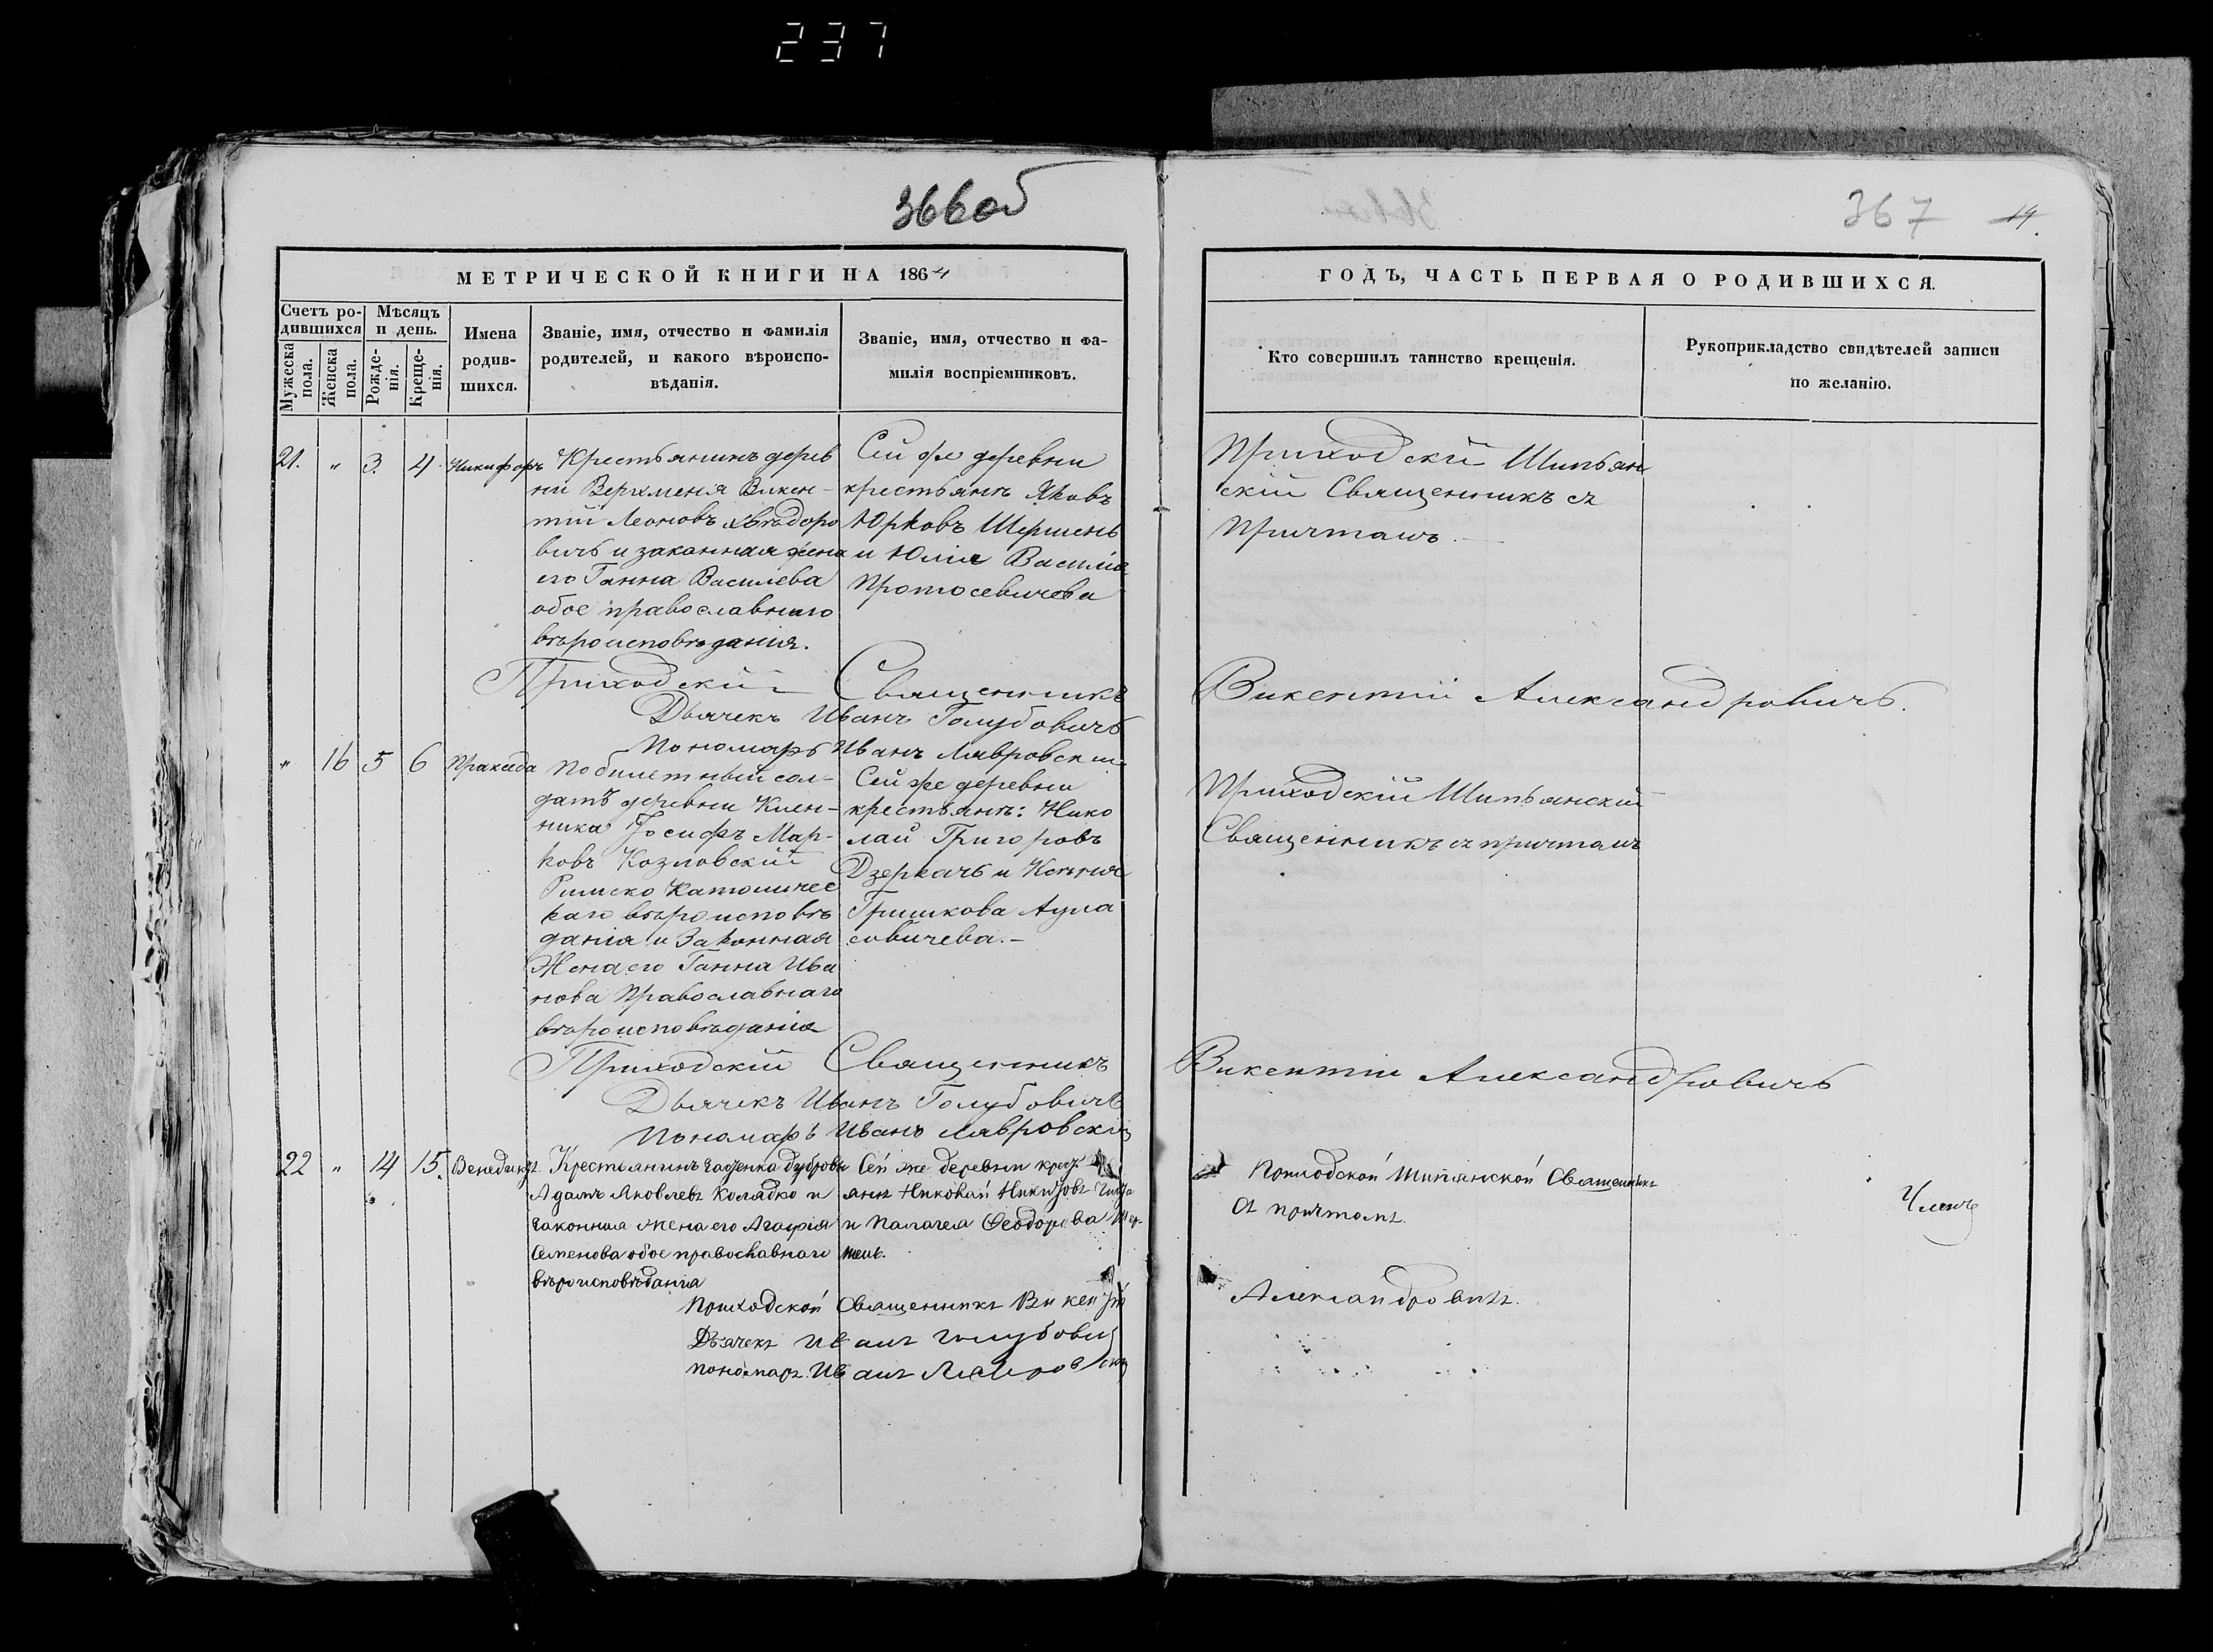 237
366об
367
19.
МЕТРИЧЕСКОЙ КНИГИ НА 1864
ГОДЪ, ЧАСТЬ ПЕРВАЯ О РОДИВШИХСЯ.
Счетъ ро-
дившихся
Мужеска
пола.
Женска
пола.
Мѣсяцъ
и день.
Рожде-
нія.
Креще-
нія.
Имена
родив-
шихся.
Званіе, имя, отчество и фамилія
родителей, и какого вѣроиспо-
вѣданія.
Званіе, имя, отчество и фа-
милія воспріемниковъ.
Кто совершилъ таинство крещенія.
Рукоприкладство свидѣтелей записи
по желанію.
21. " 3. 4. Никифоръ
Крестьянинъ дерев
ни Верхменя Викен-
тій Леоновъ
вичъ и законная жена
его Ганна Василева
обое православнаго
вѣроисповѣданія.
Сей же деревни
крестьяне Яковъ
Юрковъ Шершень
и Юлія Василіа
Протосевичева
Приходскій Шипъян
скій Священникъ съ
Причтомъ.
Приходскій Священникъ Викентій Александровичъ.
Дьячекъ Иванъ Голубовичъ
Пономарь Иванъ Лавровскій
" 16 5 6 Праксида
Побилетный сол-
датъ деревни Клен-
ника Іосифъ Мар-
ковъ Козловскій
Римско Католичес
каго вѣроисповѣ
данія и Законная
Жена его Ганна Ива
нова Православнаго
вѣроисповѣданія
Сей же деревни
крестьяне: Нико
лай Григоровъ
Дзеркачъ и Ксенія
Гришкова
совичева.-
Приходскій Шипъянскій
Священникъ съ причтомъ
Приходскій Священникъ Викентій Александровичъ
Дьячекъ Иванъ Голубовичъ
Пономарь Иванъ Лавровскій
22 " 14 15. Венедиктъ.
Крестьянинъ дубровы
Адамъ Яковлевъ Колядко и
законная жена его Агафія
Семенова обое православнаго
вѣроисповѣданія
Сей же деревни крест
яне Николай
и Палагея Феодорова Шер-
шень.
Приходской Шипянской Священникъ
съ причтомъ.
Приходской Священникъ Викентій Александровичъ.
Дьячекъ Иванъ Голубовичъ
пономарь Иванъ Лавровскій